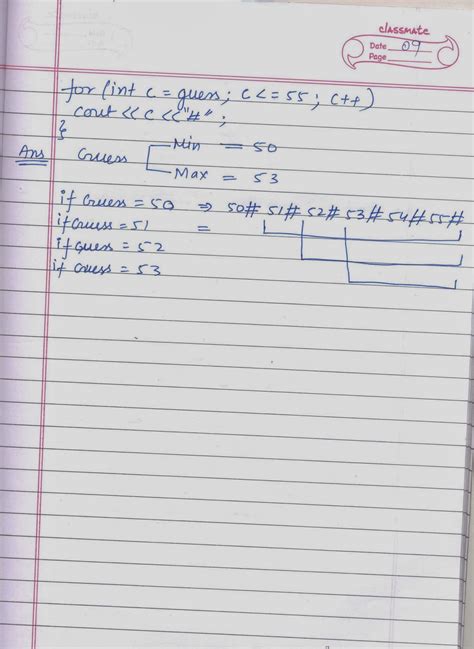 classmate
Date 09
Page
for (int c = guess ; c <= 55 ; c++)
cout << c << "#" ;
}
Ans Guess Min = 50
Max = 53
if Guess = 50 ⇒ 50# 51# 52# 53# 54# 55#
if Guess = 51 =
if guess = 52
if Guess = 53